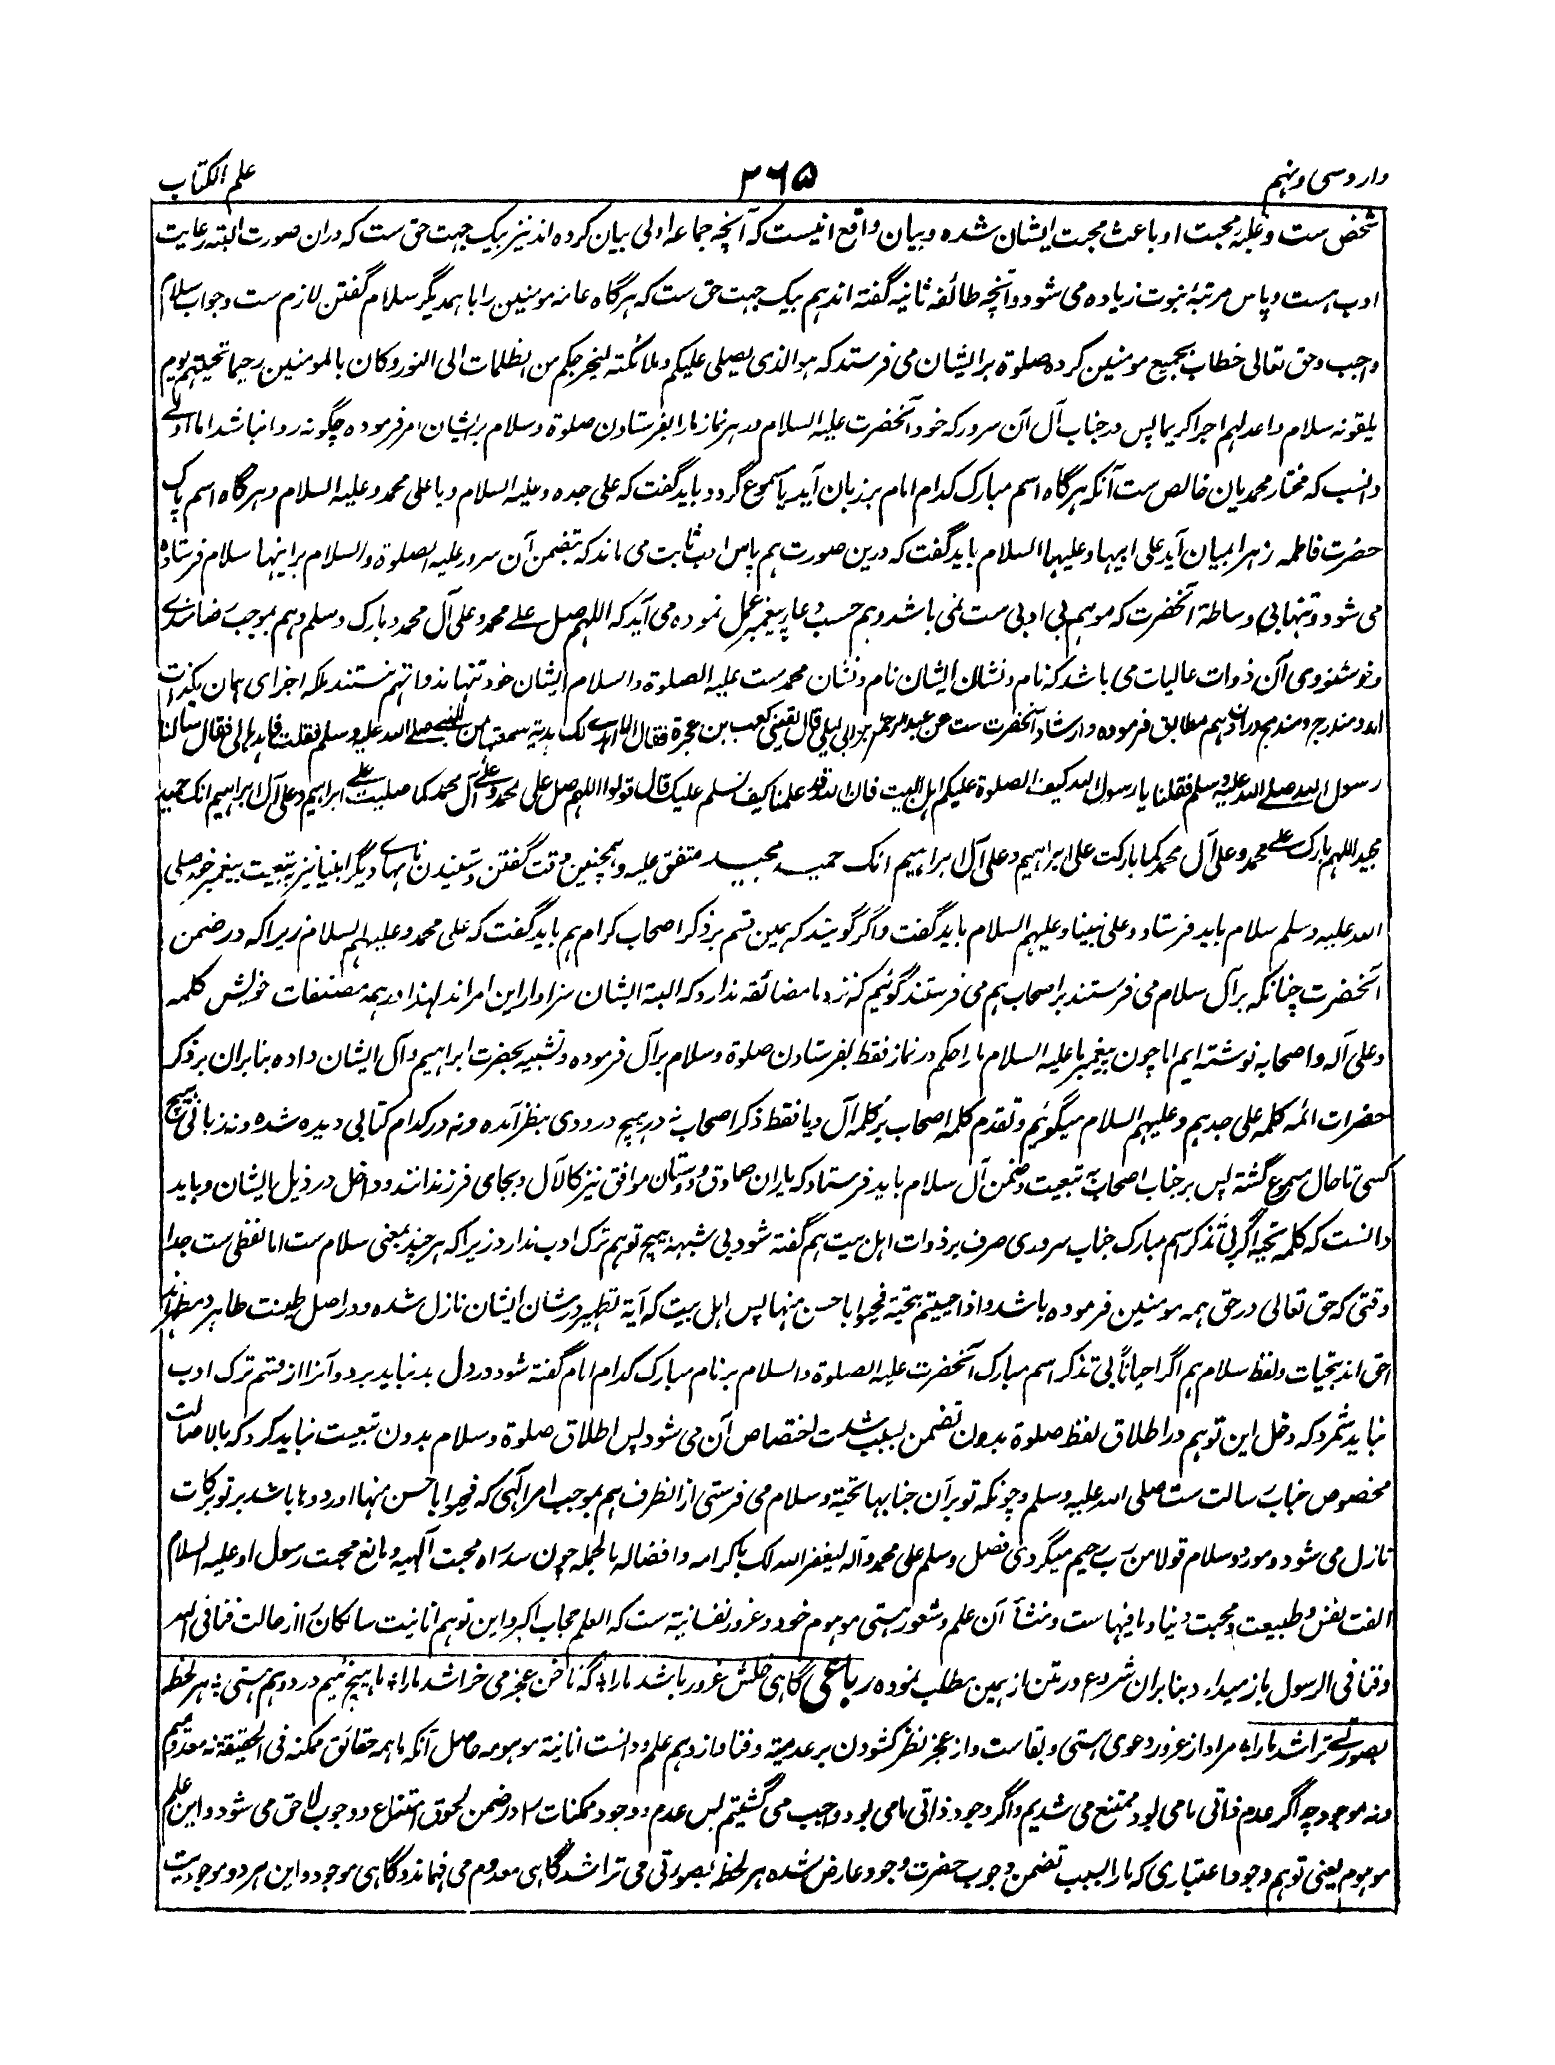 وارد سی و نهم
۲۶۵
علم الکتاب
شخص ست و غلبهٔ محبت او باعث محبت ایشان شده و بیان واقع انیست که آنچه جماعه اولی بیان کرده اند نیز بیک جهت حق ست که دران صورت البته رعایت
ادب هست و پاس مرتبهٔ نبوت زیاده می شود و آنچه طائفه ثانیه گفته اند هم بیک جهت حق ست که هرگاه عامه مومنین را با همدیگر سلام گفتن لازم ست و جواب سلام
واجب و حق تعالی خطاب بجمیع مومنین کرده صلوة بر ایشان می فرستد که هو الذی یصلی علیکم و ملائکته لیخرجکم من الظلمات الی النور و کان بالمومنین رحیما تحیتهم یوم
یلقونه سلام و اعد لهم اجرا کریما پس در جناب آل آن سرور که خود آنحضرت علیه السلام در هر نماز ما را بفرستادن صلوة و سلام بر ایشان امر فرموده چگونه روا نباشد اما اولی
و انسب که مختار محمدیان خالص ست آنکه هرگاه اسم مبارک کدام امام بر زبان آید یا مسموع گردد باید گفت که علی جده و علیه السلام و یا علی محمد و علیه السلام و هرگاه اسم پاک
حضرت فاطمه زهرا بمیان آید علی ابیها و علیها السلام باید گفت که درین صورت هم پاس ادب ثابت می ماند که بتضمن آن سرور علیه الصلوة والسلام بر اینها سلام فرستاده
می شود و تنها بی وساطهٔ آنحضرت که موهم بی ادبی ست نمی باشد و هم حسب دعای پیغمبر عمل نموده می آید که اللهم صل علی محمد و علی آل محمد و بارک وسلم و هم بموجب رضامندی
و خوشنودی آن ذوات عالیات می باشد که نام و نشان ایشان نام و نشان محمد ست علیه الصلوة والسلام ایشان خود تنها نه و نیستند بلکه اجزای همان یکذات
اند و مندرج و مندمج دران هم مطابق فرموده و ارشاد آنحضرت ست عن عبد الرحمن بن ابی لیلی قال لقینی کعب بن عجرة فقال الا اهدی لک هدیة سمعتها من النبی صلی الله علیه وسلم فقلت فاهدها لی فقال سألنا
رسول الله صلی الله علیه وسلم فقلنا یا رسول الله کیف الصلوة علیکم اهل البیت فان الله قد علمنا کیف نسلم علیک قال قولوا اللهم صل علی محمد و علی آل محمد کما صلیت علی ابراهیم و علی آل ابراهیم انک حمید
مجید اللهم بارک علی محمد و علی آل محمد کما بارکت علی ابراهیم و علی آل ابراهیم انک حمید مجید متفق علیه و همچنین وقت گفتن و شنیدن نامهای دیگر انبیا نیز به تبعیت پیغمبر خود صلی
الله علیه وسلم سلام باید فرستاد و علی نبینا و علیهم السلام باید گفت و اگر گویند که همین قسم بر ذکر اصحاب کرام هم باید گفت که علی محمد و علیهم السلام زیرا که در ضمن
آنحضرت چنانکه بر آل سلام می فرستند بر اصحاب هم می فرستند گوئیم که نزد ما مضائقه ندارد که البته ایشان سزاوار این امراند لهذا در همه مصنفات خویش کلمه
و علی آله و اصحابه نوشته ایم اما چون پیغمبر ما علیه السلام ما را حکم در نماز فقط بفرستادن صلوة و سلام بر آل فرموده و تشبیه بحضرت ابراهیم و آل ایشان داده بنابران بر ذکر
حضرات ائمه کلمه علی جدهم و علیهم السلام میگوئیم و تقدم کلمه اصحاب بر کلمه آل و یا فقط ذکر اصحاب نه در هیچ درودی بنظر آمده و نه در کدام کتابی دیده شده و نه زبانی هیچ
کسی تا حال مسموع گشته پس بر جناب اصحاب به تبعیت و ضمن آل سلام باید فرستاد که یاران صادق و دوستان موافق نیز کالآل و بجای فرزندانند و داخل در ذیل ایشان و باید
دانست که کلمه تحیة اگر بی تذکر اسم مبارک جناب سروری صرف بر ذوات اهل بیت هم گفته شود بی شبهه هیچ توهم ترک ادب ندارد زیرا که هر چند بمعنی سلام ست اما لفظی ست جدا
وقتی که حق تعالی در حق همه مومنین فرموده باشد و اذا حییتم بتحیة فحیوا باحسن منها پس اهل بیت که آیة تطهیر در شان ایشان نازل شده و در اصل طینت طاهر و مطهراند
احق اند بتحیات و لفظ سلام هم اگر احیاناً بی تذکر اسم مبارک آنحضرت علیه الصلوة والسلام بر نام مبارک کدام امام گفته شود در دل بد نباید برد و آنرا از قسم ترک ادب
نباید شمرد که دخل این توهم در اطلاق لفظ صلوة بدون تضمن بسبب شدت اختصاص آن می شود پس اطلاق صلوة و سلام بدون تبعیت نباید کرد که بالاصالت
مخصوص جناب رسالت ست صلی الله علیه وسلم و چونکه تو بر آن جنابها تحیة و سلام می فرستی از انطرف هم بموجب امر آلهی که فحیوا باحسن منها او ردوها باشد بر تو برکات
نازل می شود و مورد سلام قولا من رب رحیم میگردی فصل وسلم علی محمد و آله لیغفر الله لک باکرامه و افضاله بالجمله چون سد راه محبت آلهیه و مانع محبت رسول او علیه السلام
الفت نفس و طبیعت و محبت دنیا و مافیهاست و منشأ آن علم و شعور هستی موهوم خود و غرور نفسانیة ست که العلم حجاب اکبر و این توهم انانیت سالکان را از حالت فنا فی الله
و فنا فی الرسول باز میدارد بنابران شروع در متن از همین مطلب نموده رباعی گاهی خلش غرور باشد ما را * گه ناخن عجز می خراشد ما را * ما هیچ نئیم در دو هم هستی * هر لحظه
بصورتے تراشد ما را * مراد از غرور دعوی هستی و بقاست و از عجز نظر کشودن بر عدمیة و فنا و از وهم علم و دانست انانیة موهومه حاصل آنکه ما همه حقائق ممکنه فی الحقیقة نه معدومیم
و نه موجود چه اگر عدم ذاتی ما می بود ممتنع می شدیم و اگر وجود ذاتی ما می بود واجب می گشتیم پس عدم و وجود ممکنات در ضمن لحوق امتناع و وجوب لاحق می شود و این علم
موهوم یعنی توهم وجود اعتباری که ما را بسبب تضمن وجوب حضرت وجود عارض شده هر لحظه بصورتی می تراشد گاهی معدوم می فهماند و گاهی موجود و این هر دو موجودیت